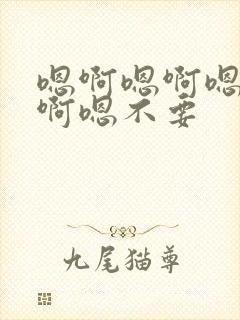 嗯啊嗯啊嗯
啊嗯不要
九尾猫尊